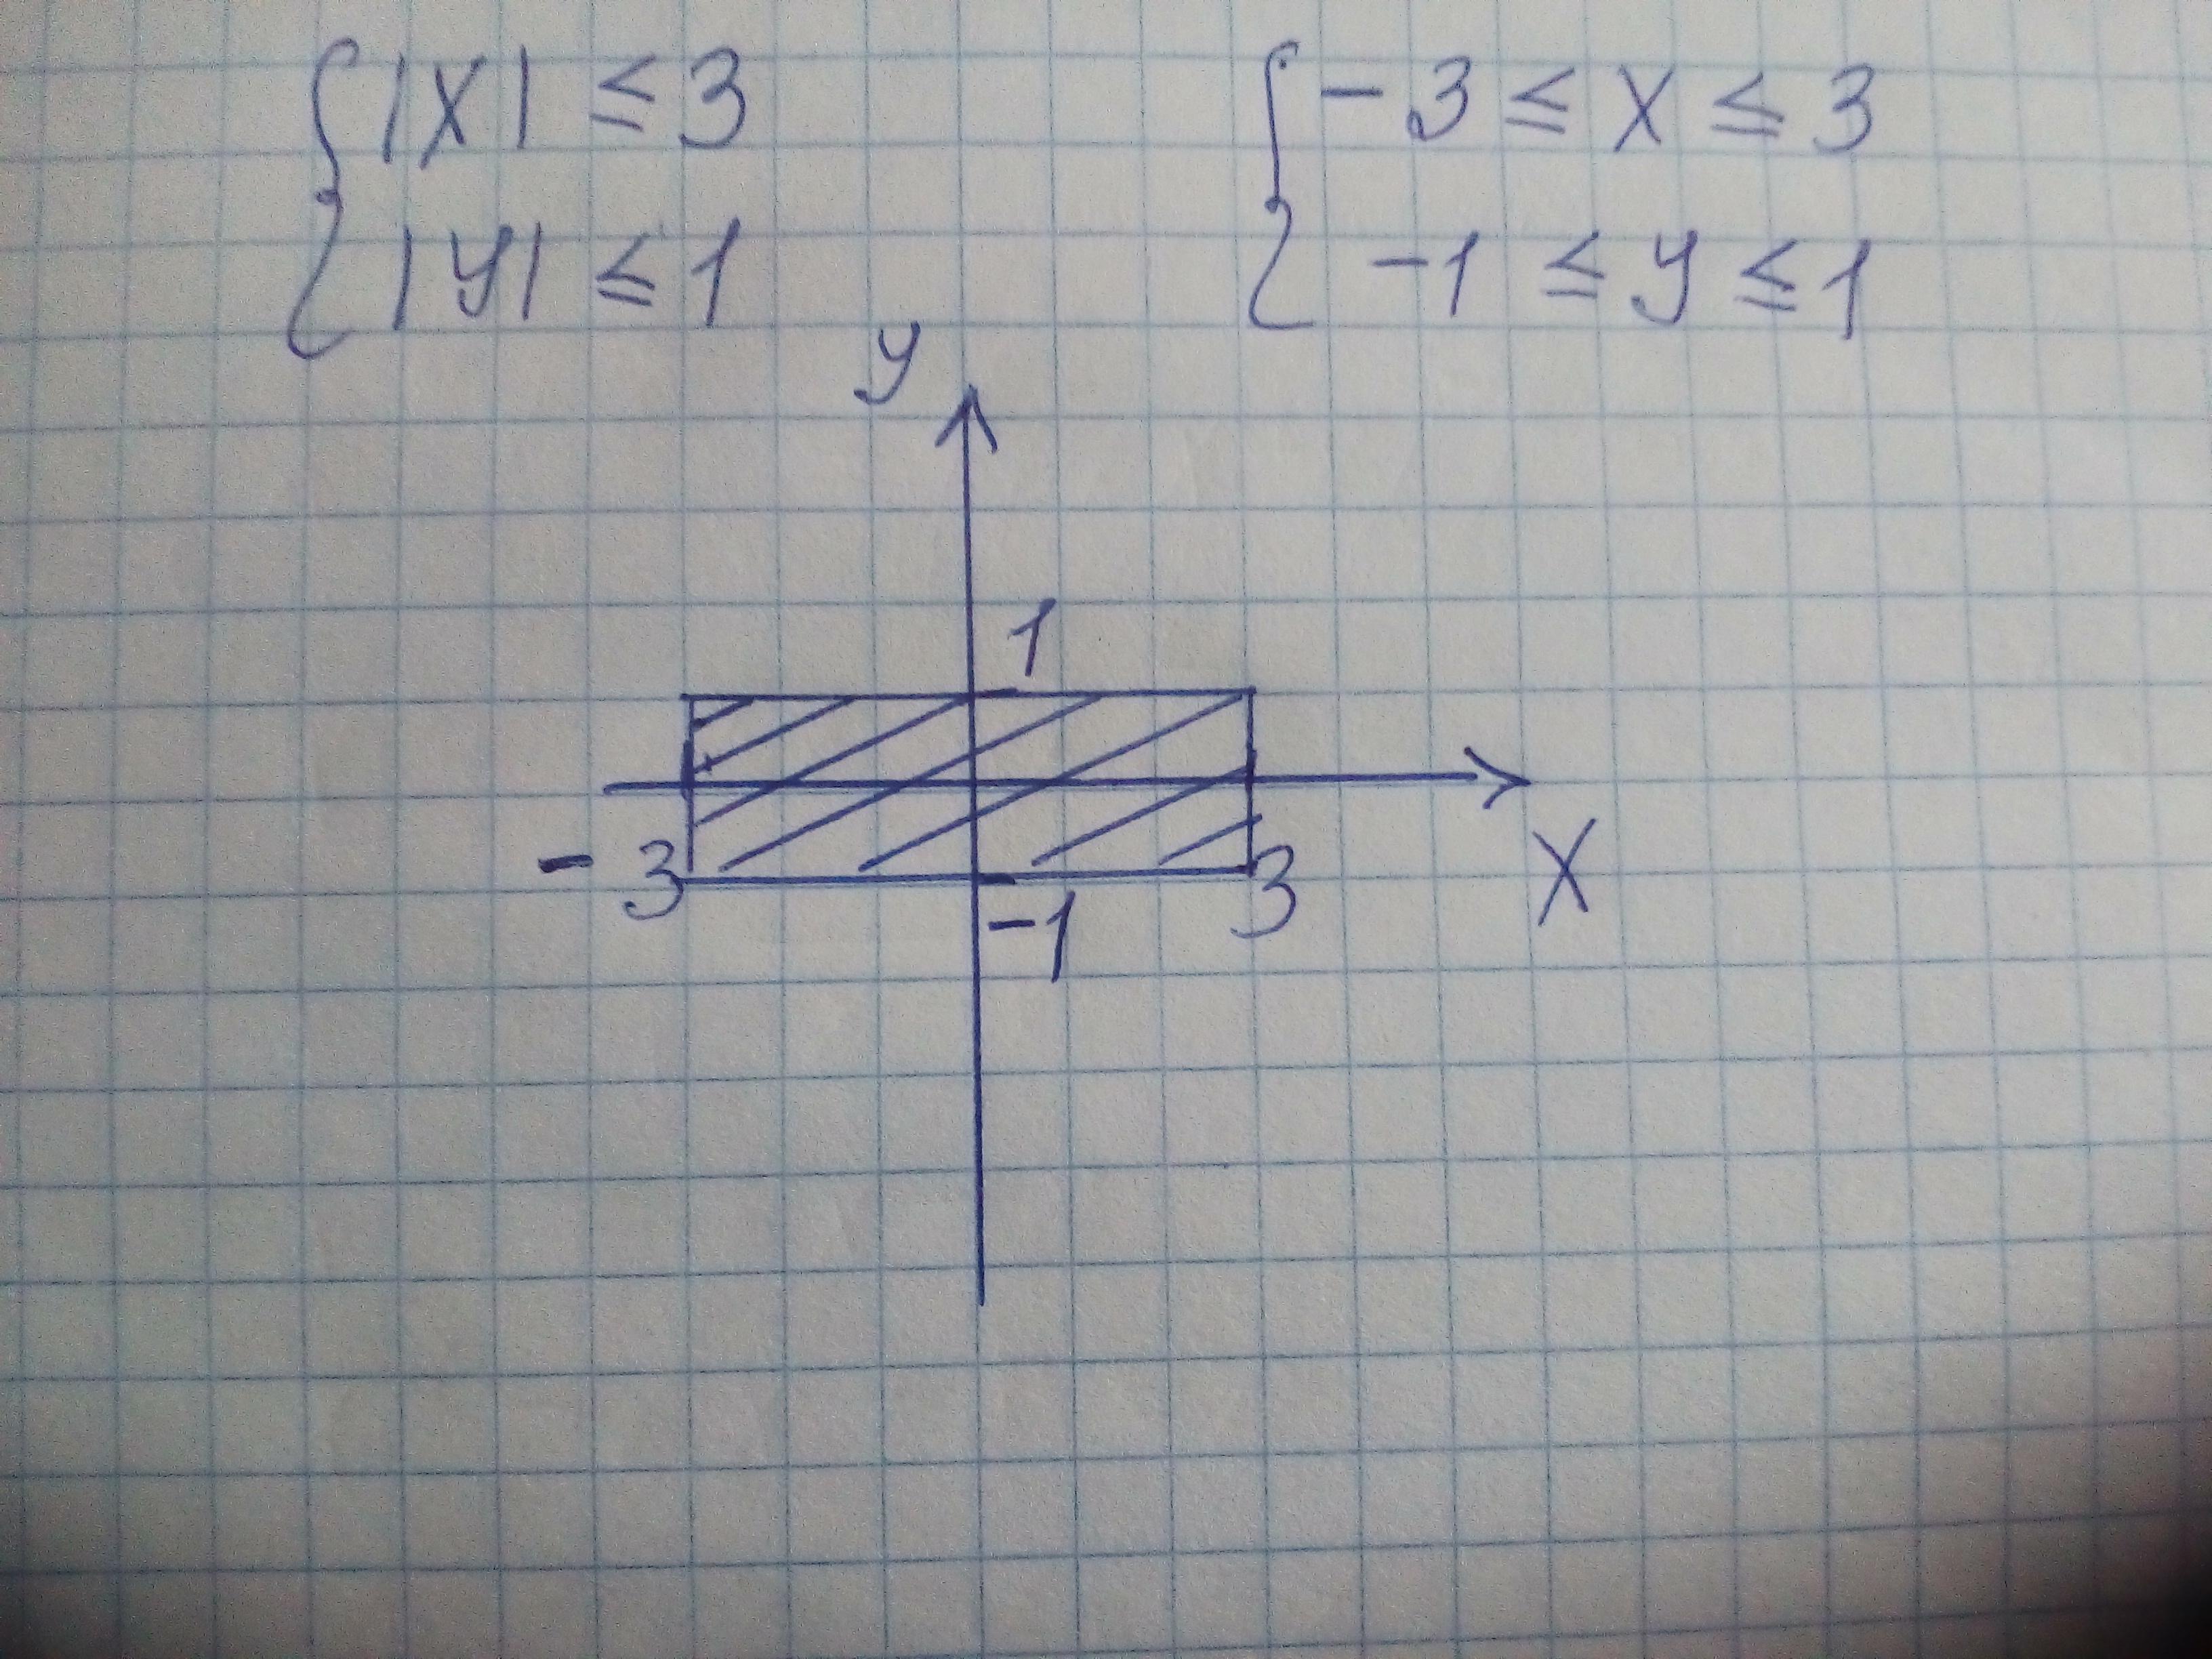 |x| ≤ 3
|y| ≤ 1
-3 ≤ x ≤ 3
-1 ≤ y ≤ 1
y
1
-3
-1
3
x